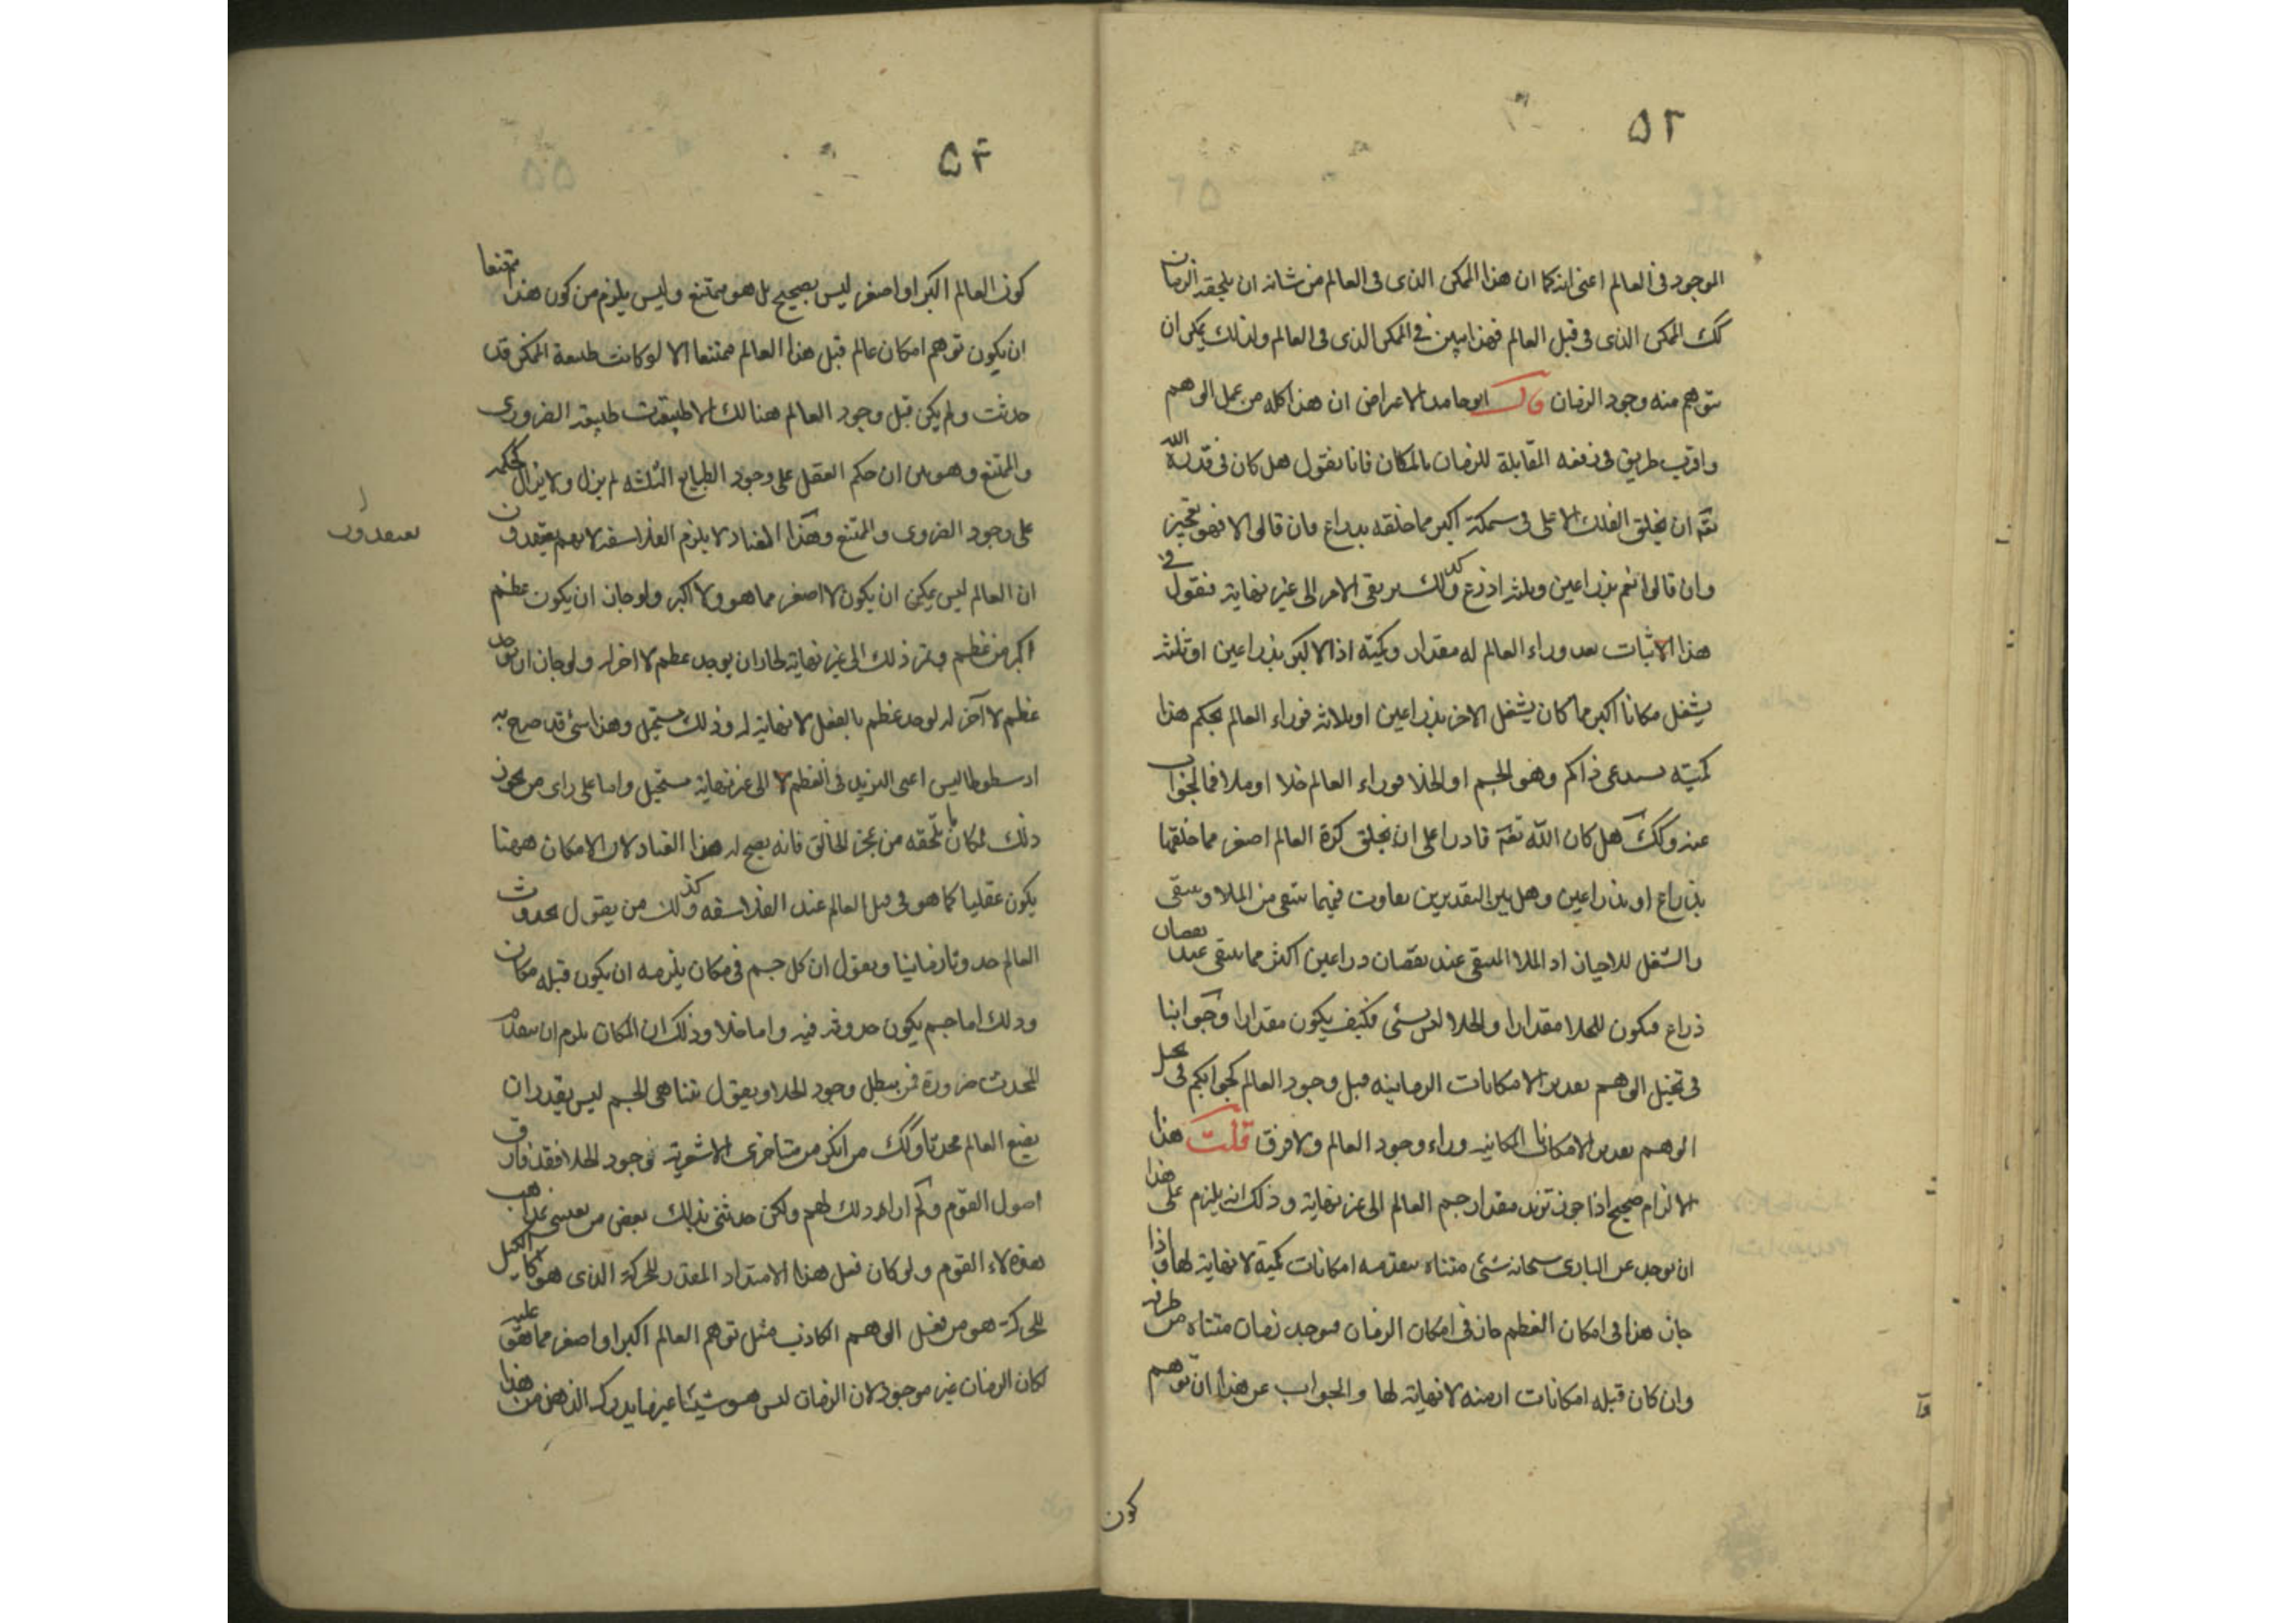 ٥٢
الموجود فى العالم اعنى انه كما ان هذا الممكن الذى فى العالم من شانه ان يلحقه الزمان
كك الممكن الذى فى قبل العالم فهذا مبين فى الممكن الذى فى العالم ولذلك يمكن ان
يتوهم منه وجود الزمان قال ابو حامد الاعراض ان هذا كله من عمل الوهم
واقرب طريق فى دفعه المقابلة للزمان بالمكان فانا نقول هل كان فى قدرة الله
تعه ان يخلق الفلك الاعلى فى سمكه اكبر مما خلقه بذراع فان قالوا لا فهو تعجيز
وان قالوا نعم بذراعين وثلثه اذرع وكذلك يرتقى الامر الى غير نهاية فنقول فى
هذا الاثبات بعد وراء العالم له مقدار وكمية اذ الاكبر بذراعين او ثلثه
يشغل مكانا اكبر مما كان يشغل الاخر بذراعين او ثلاثه فوراء العالم بحكم هذا
كميته يستدعى ذا كم وهو الجسم او الخلا فوراء العالم خلا او ملا فما الجواب
عنه وكك هل كان الله تعه قادرا على ان يخلق كرة العالم اصغر مما خلقها
بذراع او بذراعين وهل بين التقديرين تفاوت فيما ينتفى من الملا وينتفى
والشغل للاحياز اذ الملا المنتفى عند نقصان ذراعين اكثر مما ينتفى عند نقصان
ذراع فيكون للخلا مقدارا والخلا ليس بشئ فكيف يكون مقدارا وجوابنا
فى تخيل الوهم تقدير الامكانات الزمانيه قبل وجود العالم كجوابكم فى تخيل
الوهم تقدير الامكانات المكانيه وراء وجود العالم ولا فرق قلت هذا
الالزام صحيح اذا جوز تزيد مقدار جسم العالم الى غير نهاية وذلك انه يلزم على هذا
ان يوجد عن البارى سبحانه شئ متناه يتقدمه امكانات كمية لا نهاية لها واذا
جاز هذا فى امكان العظم جاز فى امكان الزمان فيوجد زمان متناه من طرفيه
وان كان قبله امكانات ازمنه لا نهاية لها والجواب عن هذا ان توهم
كون
٥٣
كون العالم اكبر او اصغر ليس بصحيح بل هو ممتنع وليس يلزم من كون هذا ممتنعا
ان يكون توهم امكان عالم قبل هذا العالم ممتنعا الا لو كانت طبيعة الممكن قد
حدثت ولم يكن قبل وجود العالم هنالك الا طبيعتان طبيعة الضرورى
والممتنع وهو بين ان حكم العقل على وجود الطبايع الثلثه لم يزل ولا يزال كحكمه
على وجود الضرورى والممتنع وهذا العناد لا يلزم الفلاسفه لانهم يعتقدون
يعتقدون
ان العالم ليس يمكن ان يكون لا اصغر مما هو ولا اكبر ولو جاز ان يكون عظم
اكبر من عظم ويمر ذلك الى غير نهاية لجاز ان يوجد عظم لا اخر له ولو جاز ان يوجد
عظم لا آخر له لوجد عظم بالفعل لا نهاية له وذلك مستحيل وهذا شئ قد صرح به
ارسطوطاليس اعنى التزيد فى العظم لا الى غير نهاية مستحيل واما على راى من يجوز
ذلك لمكان ما يلحقه من عجز الخالق فانه يصح له هذا العناد لان الامكان ههنا
يكون عقليا كما هو فى قبل العالم عند الفلاسفه وكذلك من يقول بحدوث
العالم حدوثا زمانيا ويقول ان كل جسم فى مكان يلزمه ان يكون قبله مكان
وذلك اما جسم يكون حدوثه فيه واما خلا وذلك ان المكان يلزم ان يتقدم
المحدث ضرورة فمن يبطل وجود الخلا ويقول بتناهى الجسم ليس يقدر ان
يضع العالم محدثا وكك من انكر من متاخرى الاشعرية وجود الخلا فقد فارق
اصول القوم ولم ار ذلك لهم ولكن حدثنى بذلك بعض من يعتنى بمذاهب
هؤلاء القوم ولو كان فعل هذا الامتداد المقدر للحركة الذى هو كالكيل
للحركة هو من فعل الوهم الكاذب مثل توهم العالم اكبر او اصغر مما هو عليه
لكان الزمان غير موجود لان الزمان ليس هو شيئا غير ما يدركه الذهن من هذا